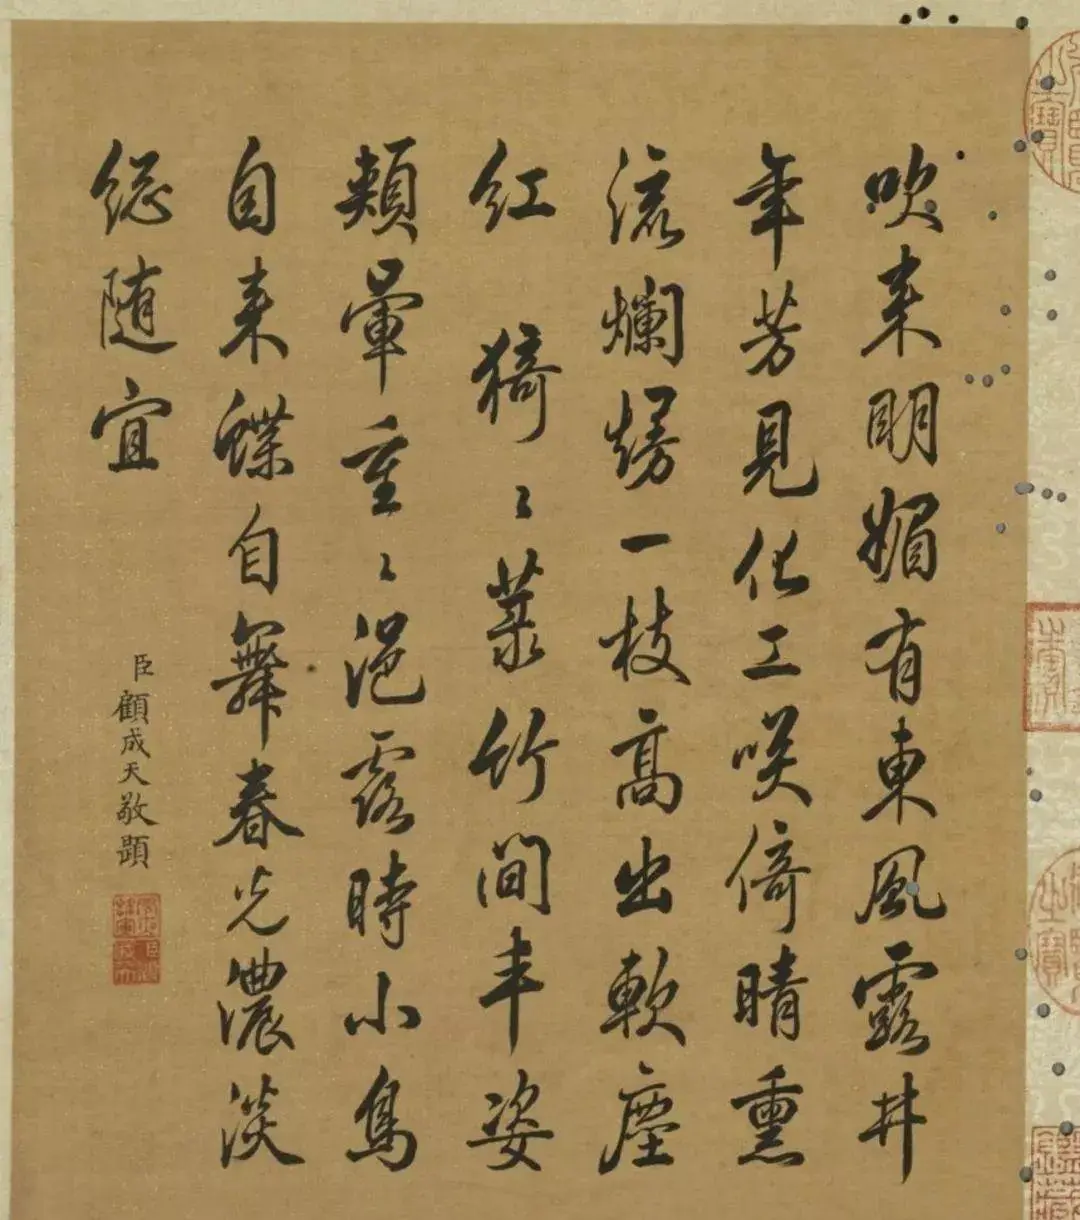 吹来明媚有東風露井
年芳見化工咲倚晴熏
流爛熳一枝高出軟塵
紅　猗〻菉竹間丰姿
頰暈重〻浥露時小鳥
自来蝶自舞春光濃淡
総随宜
臣顧成天敬題